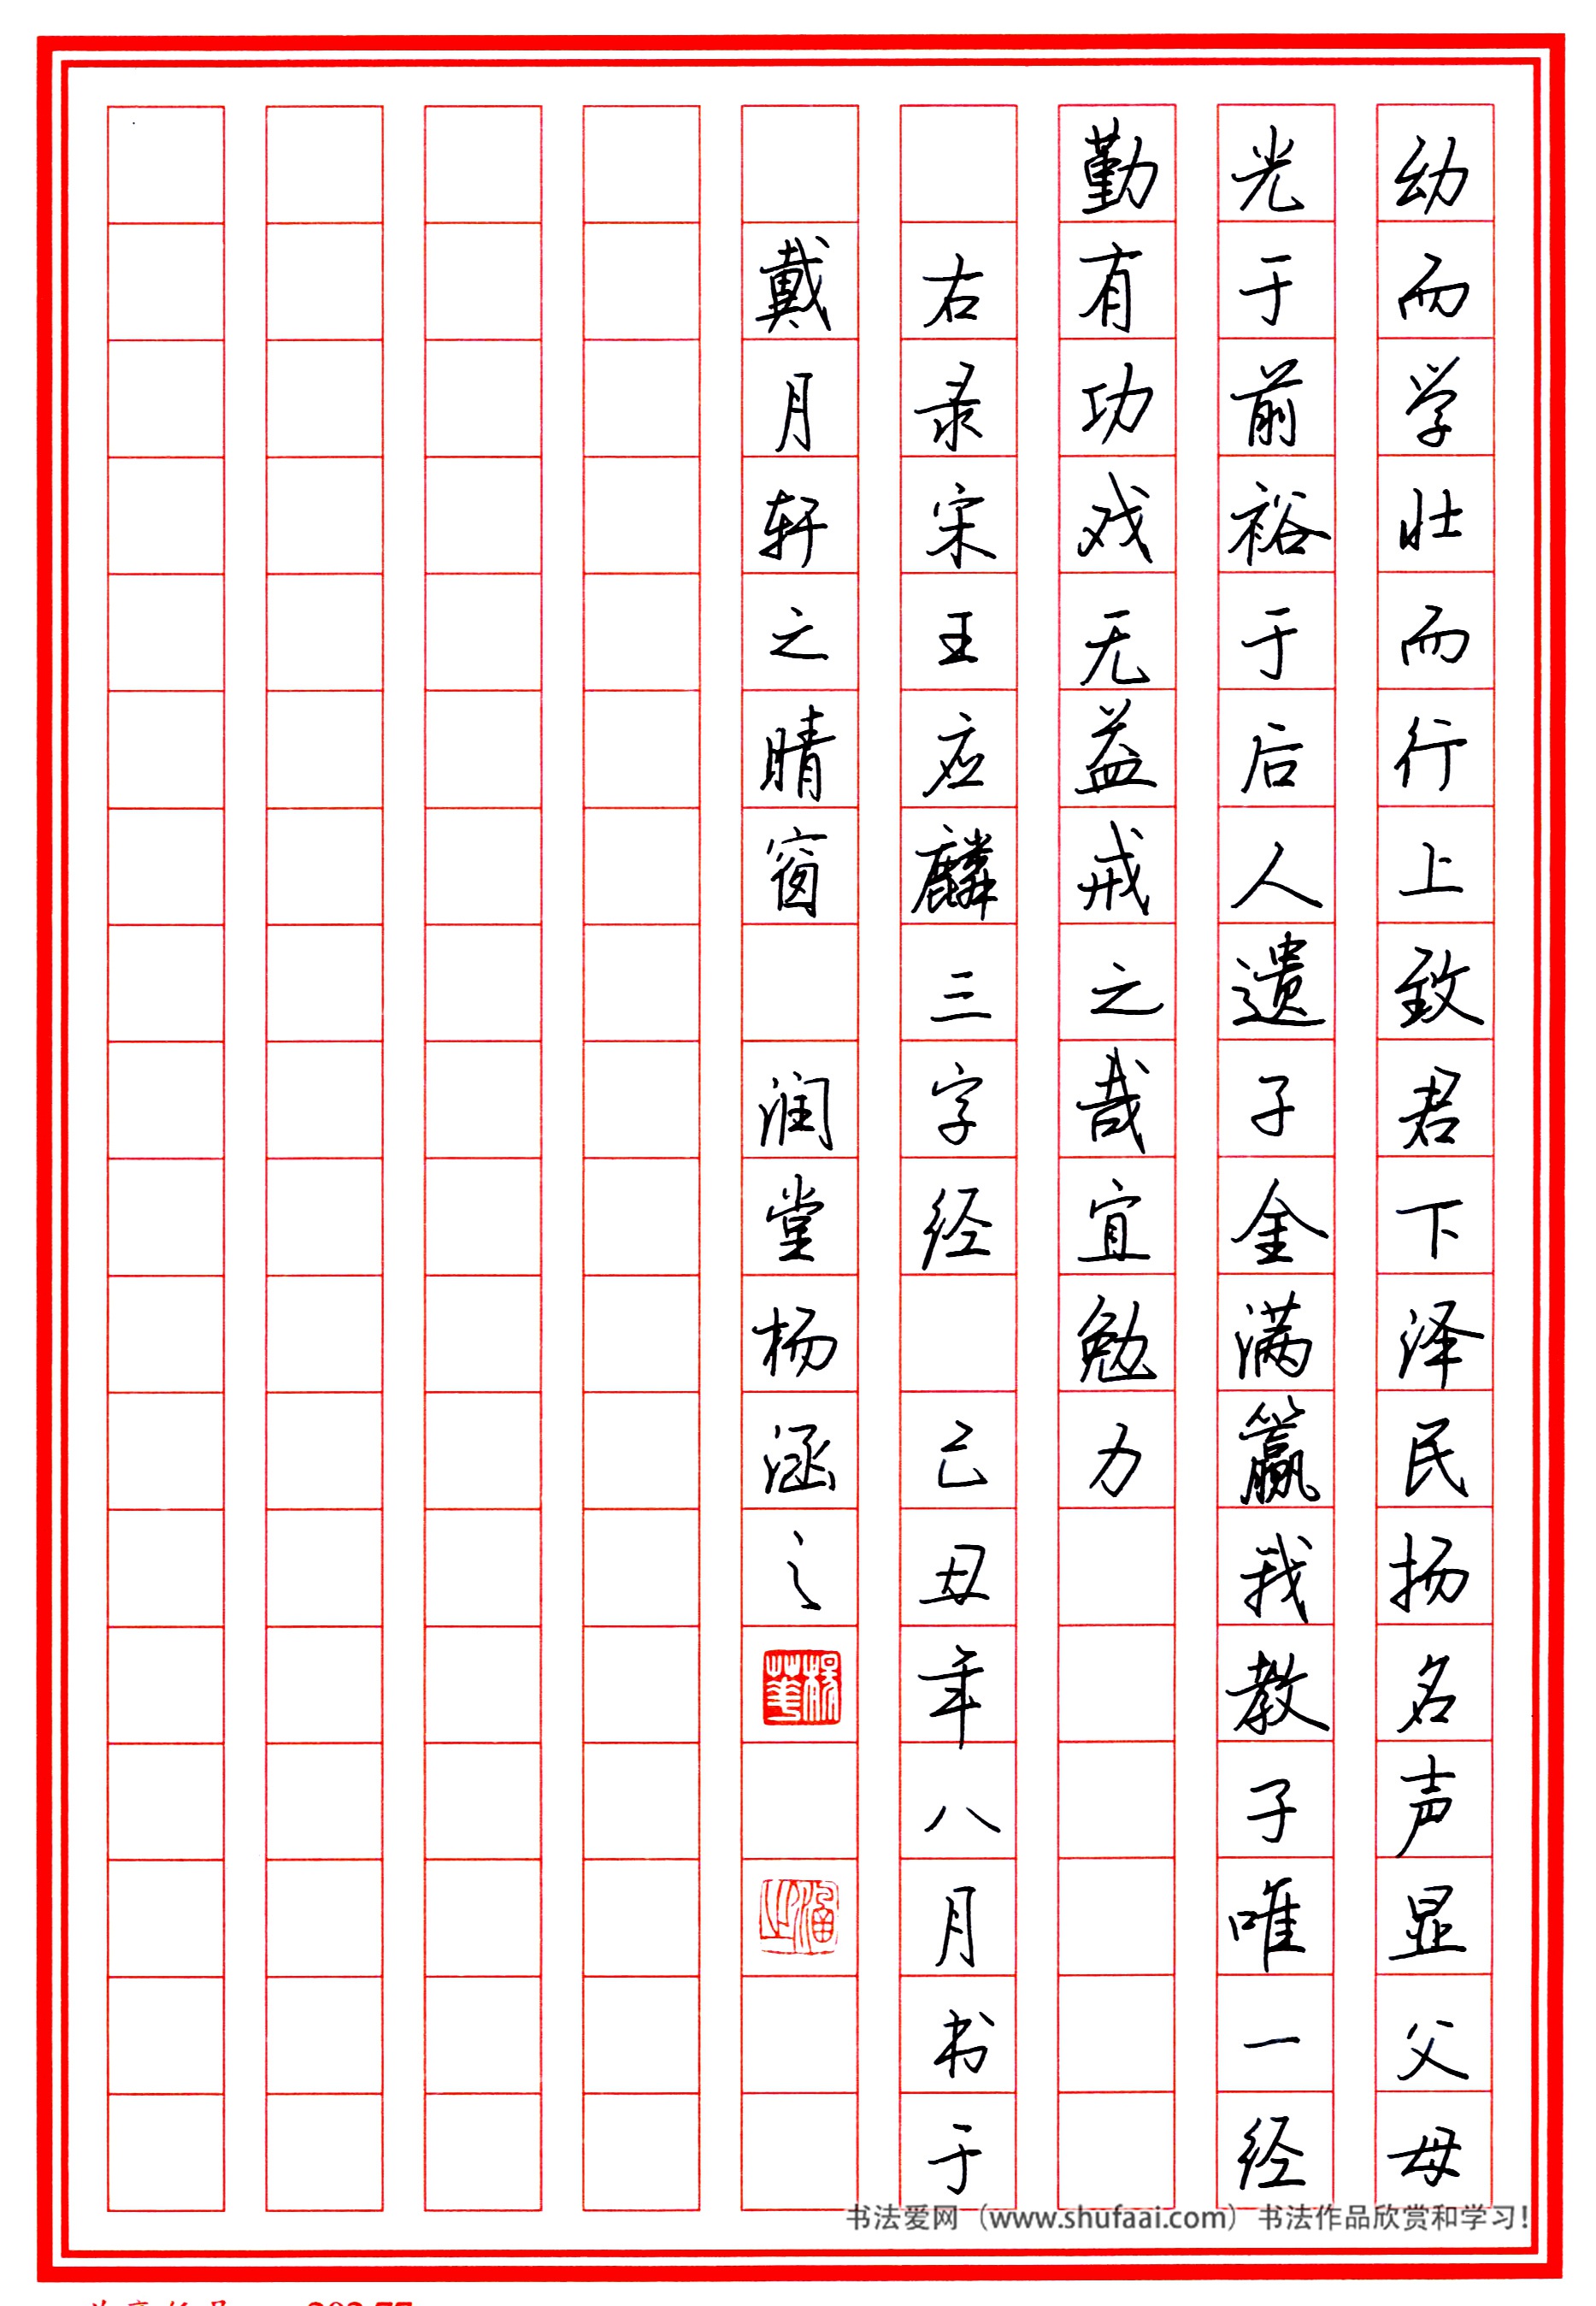 幼而学壮而行上致君下泽民扬名声显父母
光于前裕于后人遗子金满籝我教子唯一经
勤有功戏无益戒之哉宜勉力
右录宋王应麟三字经 己丑年八月书于
戴月轩之晴窗 润堂杨涵之
书法爱网（www.shufaai.com）书法作品欣赏和学习！